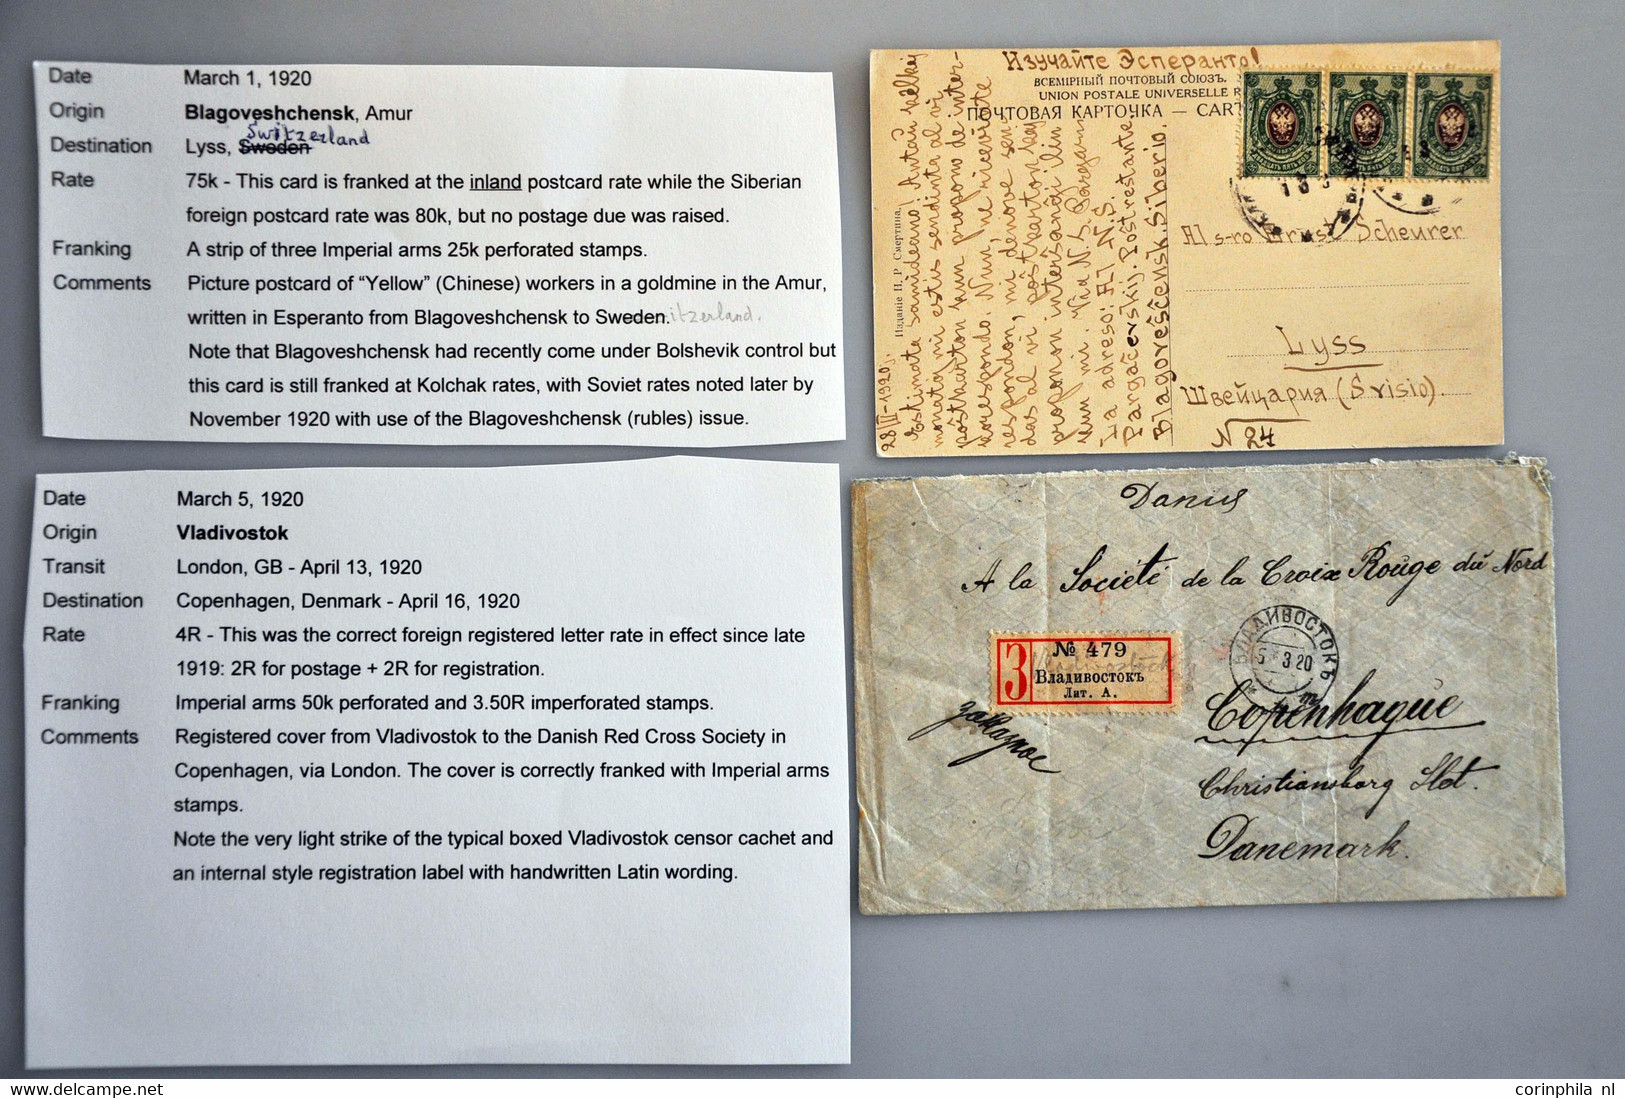 Date March 1, 1920
Origin Blagoveshchensk, Amur
Switzerland
Destination Lyss, Sweden
Rate 75k - This card is franked at the inland postcard rate while the Siberian
foreign postcard rate was 80k, but no postage due was raised.
Franking A strip of three Imperial arms 25k perforated stamps.
Comments Picture postcard of “Yellow” (Chinese) workers in a goldmine in the Amur,
written in Esperanto from Blagoveshchensk to Sweden.itzerland.
Note that Blagoveshchensk had recently come under Bolshevik control but
this card is still franked at Kolchak rates, with Soviet rates noted later by
November 1920 with use of the Blagoveshchensk (rubles) issue.
Date March 5, 1920
Origin Vladivostok
Transit London, GB - April 13, 1920
Destination Copenhagen, Denmark - April 16, 1920
Rate 4R - This was the correct foreign registered letter rate in effect since late
1919: 2R for postage + 2R for registration.
Franking Imperial arms 50k perforated and 3.50R imperforated stamps.
Comments Registered cover from Vladivostok to the Danish Red Cross Society in
Copenhagen, via London. The cover is correctly franked with Imperial arms
stamps.
Note the very light strike of the typical boxed Vladivostok censor cachet and
an internal style registration label with handwritten Latin wording.
Изучайте Эсперанто!
ВСЕМІРНЫЙ ПОЧТОВЫЙ СОЮЗЪ.
UNION POSTALE UNIVERSELLE R
ПОЧТОВАЯ КАРТОЧКА — CART
Изданіе П. Р. Смертина.
28/II-1920j.
Estimata samideano! Antaŭ kelkaj
monataj mi estis sendinta al vi
poŝtkarton kun propono de inter-
korespondo. Nun, ne ricevinte
respondon, mi denove sen-
das al vi poŝtkarton kaj
proponon interŝanĝi ilin
kun mi. Via N. S. Pargaĉ.
La adreso: Al N.S.
Pargaĉevskij. Poŝtrestante.
Blagoveŝĉensk. Siberio.
Al s-ro Ernst Scheurer
Lyss
Швейцария (Svisio).
N 24
Danius
A la Société de la Croix Rouge du Nord
3
№ 479
Владивостокъ
Лит. А.
Vladivostock
ВЛАДИВОСТОКЪ
5 3 20
заказное
Copenhague
Christiansborg Slot.
Danemark.
corinphila nl